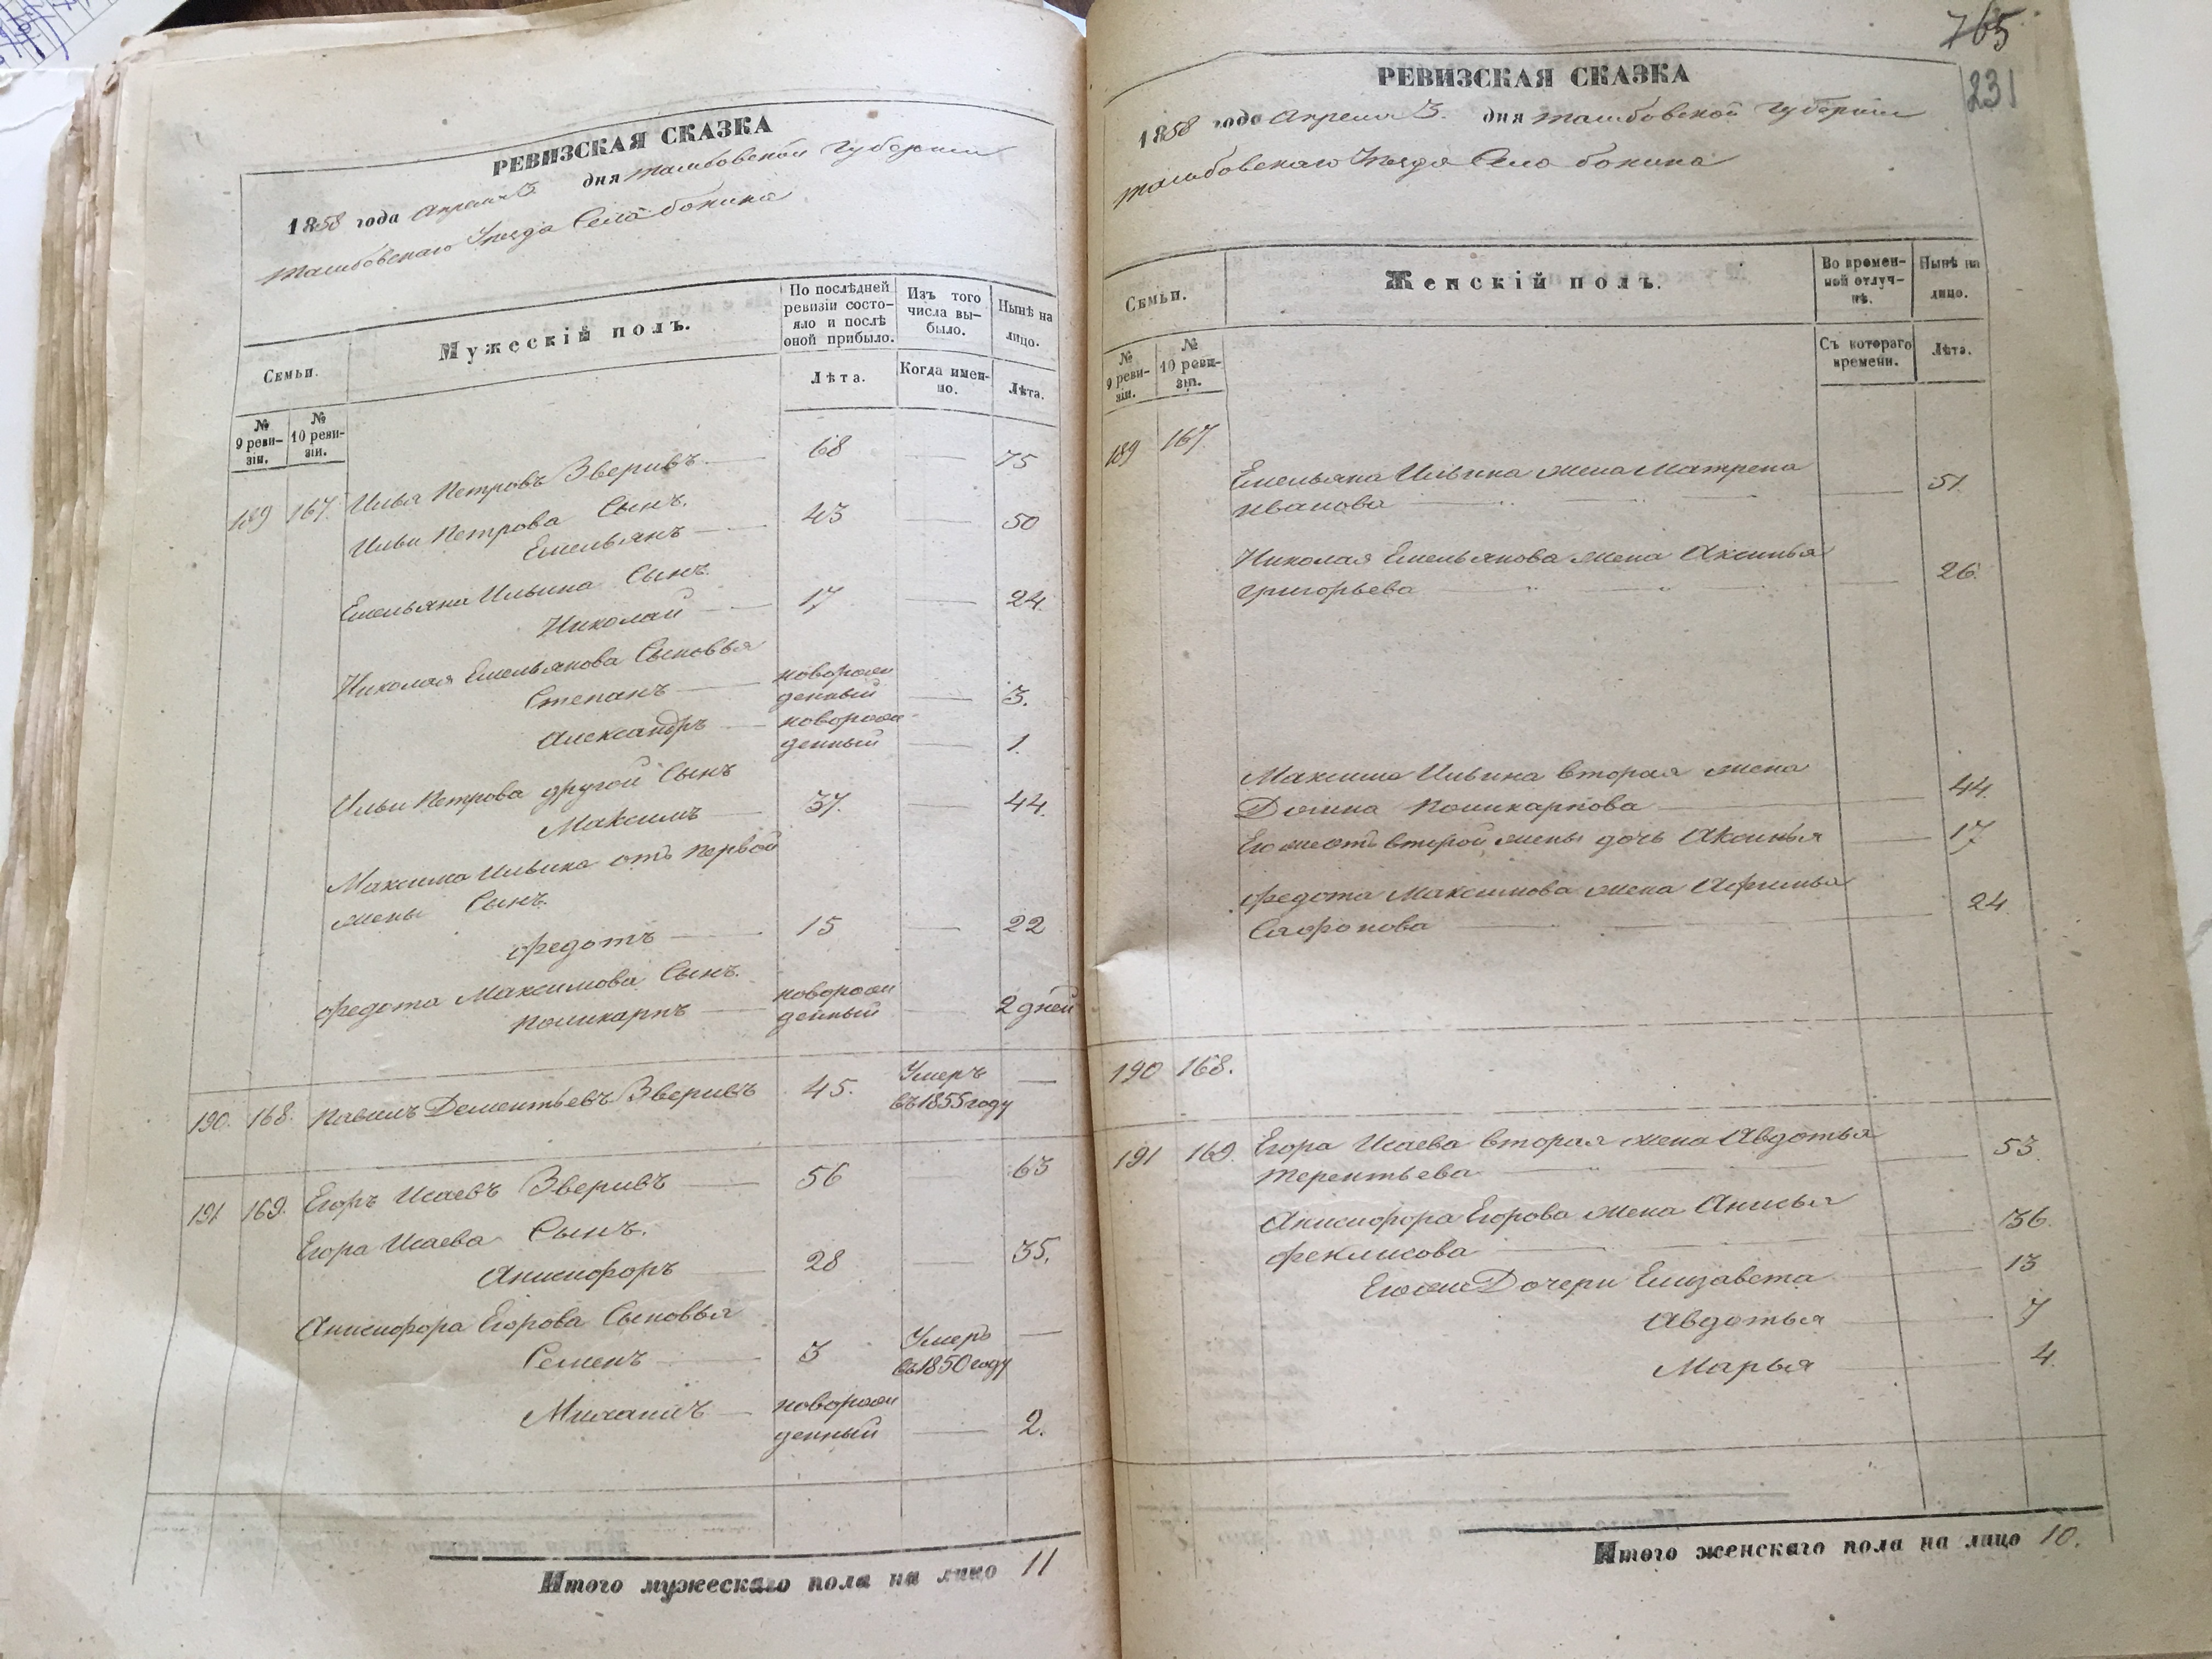 РЕВИЗСКАЯ СКАЗКА
1858 года Апреля 3. дня Тамбовской Губернии
Тамбовскаго Уезда Села Бокина
Семьи.
Мужескій полъ.
По послѣдней ревизіи состояло и послѣ оной прибыло.
Изъ того числа выбыло.
Нынѣ на лицо.
№ 9 ревизіи.
№ 10 ревизіи.
Лѣта.
Когда именно.
Лѣта.
189 167. Илья Петровъ Зверивъ 68 — 75
Ильи Петрова Сынъ.
Емельянъ 43 — 50
Емельяна Ильина Сынъ.
Николай 17 — 24.
Николая Емельянова Сыновья
Степанъ новорожденный — 3.
Александръ новорожденный — 1.
Ильи Петрова другой Сынъ
Максимъ 37. — 44.
Максима Ильина отъ первой
жены Сынъ.
Федотъ 15 — 22
Федота Максимова Сынъ.
Поликарпъ новорожденный — 2 дней
190. 168. Павилъ Дементьевъ Зверивъ 45. Умеръ въ 1855 году —
191 169. Егоръ Исаевъ Зверивъ 56 — 63
Егора Исаева Сынъ.
Анисифоръ 28 — 35.
Анисифора Егорова Сыновья
Семенъ 3 Умеръ въ 1850 году —
Михаилъ новорожденный — 2.
Итого мужескаго пола на лицо 11
765
231
РЕВИЗСКАЯ СКАЗКА
1858 года Апреля 3. дня Тамбовской Губернии
Тамбовскаго Уезда Села Бокина
Семьи.
Женскій полъ.
Во временной отлучкѣ.
Нынѣ на лицо.
№ 9 ревизіи.
№ 10 ревизіи.
Съ котораго времени.
Лѣта.
189 167.
Емельяна Ильина жена Матрена
Иванова — 51.
Николая Емельянова жена Аксинья
Григорьева — 26.
Максима Ильина вторая жена
Домна Поликарпова — 44.
Его же отъ второй жены дочь Аксинья — 17
Федота Максимова жена Афимья
Сафронова — 24
190 168.
191 169. Егора Исаева вторая жена Авдотья
Терентьева — 53.
Анисифора Егорова жена Анисья
Феклисова — 36.
Его же Дочери Елизавета — 13
Авдотья — 7
Марья — 4.
Итого женскаго пола на лицо 10.